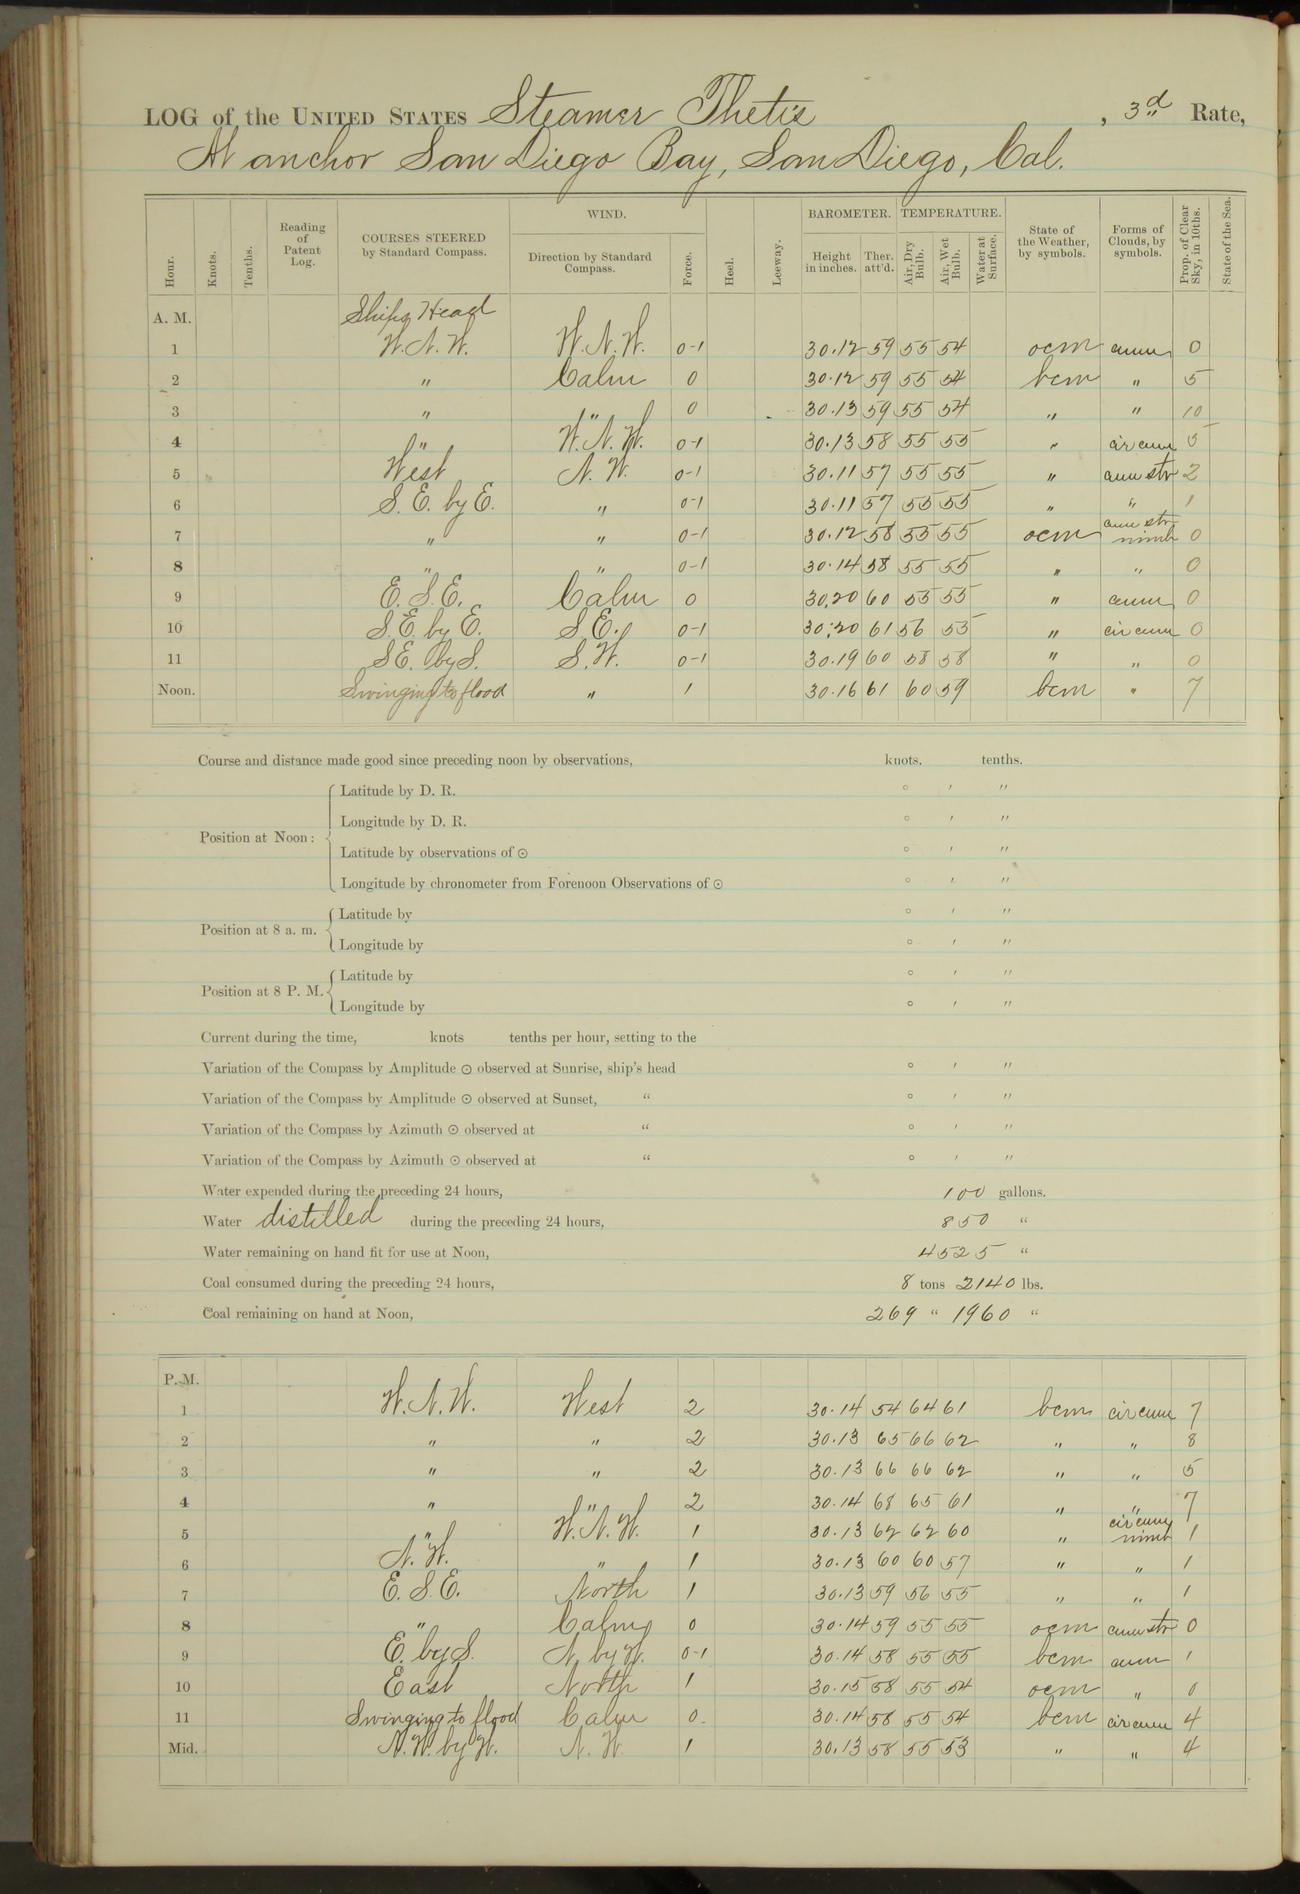 LOG of the UNITED STATES Steamer Thetis, 3d Rate,
At anchor San Diego Bay, San Diego, Cal.
Hour. Knots. Tenths. Reading of Patent Log. COURSES STEERED by Standard Compass. WIND. Direction by Standard Compass. Force. Heel. Leeway. BAROMETER. Height in inches. Ther. att'd. TEMPERATURE. Air, Dry Bulb. Air, Wet Bulb. Water at Surface. State of the Weather, by symbols. Forms of Clouds, by symbols. Prop. of Clear Sky, in 10ths. State of the Sea.
A. M. Ships Head
1 W.N.W. W.N.W. 0-1 30.12 59 55 54 ocm cum 0
2 " Calm 0 30.12 59 55 54 bcm " 5
3 " " 0 30.13 59 55 54 " " 10
4 " W.N.W. 0-1 30.13 58 55 55 " cir cum 5
5 West N.W. 0-1 30.11 57 55 55 " cum str 2
6 S.E. by E. " 0-1 30.11 57 55 55 " " 1
7 " " 0-1 30.12 58 55 55 ocm cum str nimb 0
8 " " 0-1 30.14 58 55 55 " " 0
9 E.S.E. Calm 0 30.20 60 55 55 " cum 0
10 S.E. by E. S.E. 0-1 30.20 61 56 55 " cir cum 0
11 S.E. by S. S.W. 0-1 30.19 60 58 58 " " 0
Noon. Swinging to flood " 1 30.16 61 60 59 bcm " 7
Course and distance made good since preceding noon by observations, knots. tenths.
Position at Noon: Latitude by D. R. ° ′ ″
Longitude by D. R. ° ′ ″
Latitude by observations of ☉ ° ′ ″
Longitude by chronometer from Forenoon Observations of ☉ ° ′ ″
Position at 8 a. m. Latitude by ° ′ ″
Longitude by ° ′ ″
Position at 8 P. M. Latitude by ° ′ ″
Longitude by ° ′ ″
Current during the time, knots tenths per hour, setting to the
Variation of the Compass by Amplitude ☉ observed at Sunrise, ship's head ° ′ ″
Variation of the Compass by Amplitude ☉ observed at Sunset, " ° ′ ″
Variation of the Compass by Azimuth ☉ observed at " ° ′ ″
Variation of the Compass by Azimuth ☉ observed at " ° ′ ″
Water expended during the preceding 24 hours, 100 gallons.
Water distilled during the preceding 24 hours, 850 "
Water remaining on hand fit for use at Noon, 4525 "
Coal consumed during the preceding 24 hours, 8 tons 2140 lbs.
Coal remaining on hand at Noon, 269 " 1960 "
P. M.
1 W.N.W. West 2 30.14 54 64 61 bcm cir cum 7
2 " " 2 30.13 65 66 62 " " 8
3 " " 2 30.13 66 66 62 " " 5
4 " " 2 30.14 68 65 61 " " 7
5 " W.N.W. 1 30.13 62 62 60 " cir cum nimb 1
6 N.W. " 1 30.13 60 60 57 " " 1
7 E.S.E. North 1 30.13 59 56 55 " " 1
8 " Calm 0 30.14 59 55 55 ocm cum str 0
9 E. by S. N. by W. 0-1 30.14 58 55 55 bcm cum 1
10 East North 1 30.15 58 55 54 ocm " 0
11 Swinging to flood Calm 0 30.14 58 55 54 bcm cir cum 4
Mid. N.W. by W. N.W. 1 30.13 58 55 53 " " 4